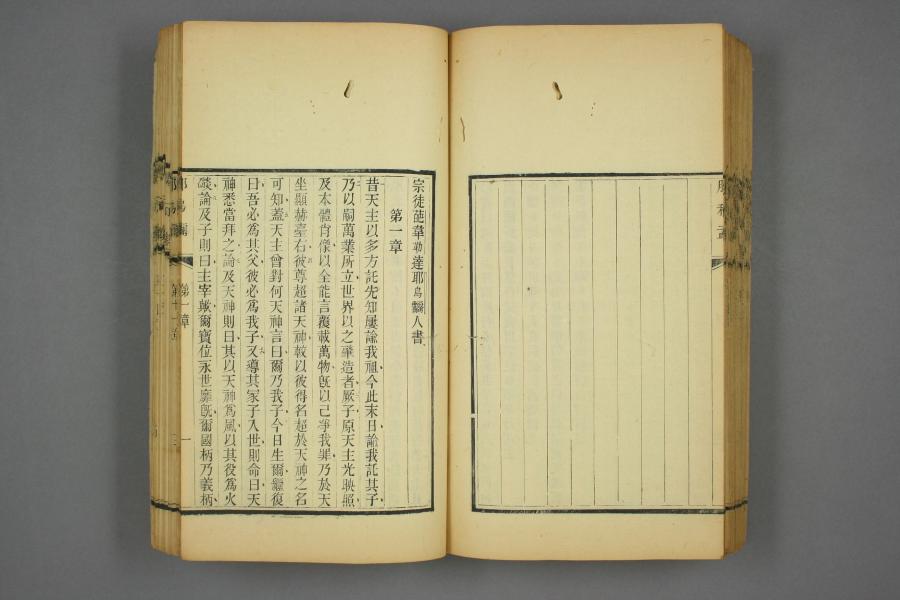 宗徒葩韋勒達耶烏爾人書
第一章
昔天主以多方託先知屢諭我祖今此末日諭我託其子
乃以嗣萬業所立世界以之肇造者厥子原天主光映照
及本體肖像以全能言覆載萬物旣以己凈我罪乃於天
坐顯赫臺右彼尊超諸天神較以彼得名超於天神之名
可知蓋天主曾對何天神言曰爾乃我子今日生爾繼復
曰吾必爲其父彼必爲我子又導其家子入世則命曰天
神悉當拜之論及天神則曰其以天神爲風以其役爲火
燄論及子則曰主宰歟爾寶位永世靡旣爾國柄乃義柄
第一章
一